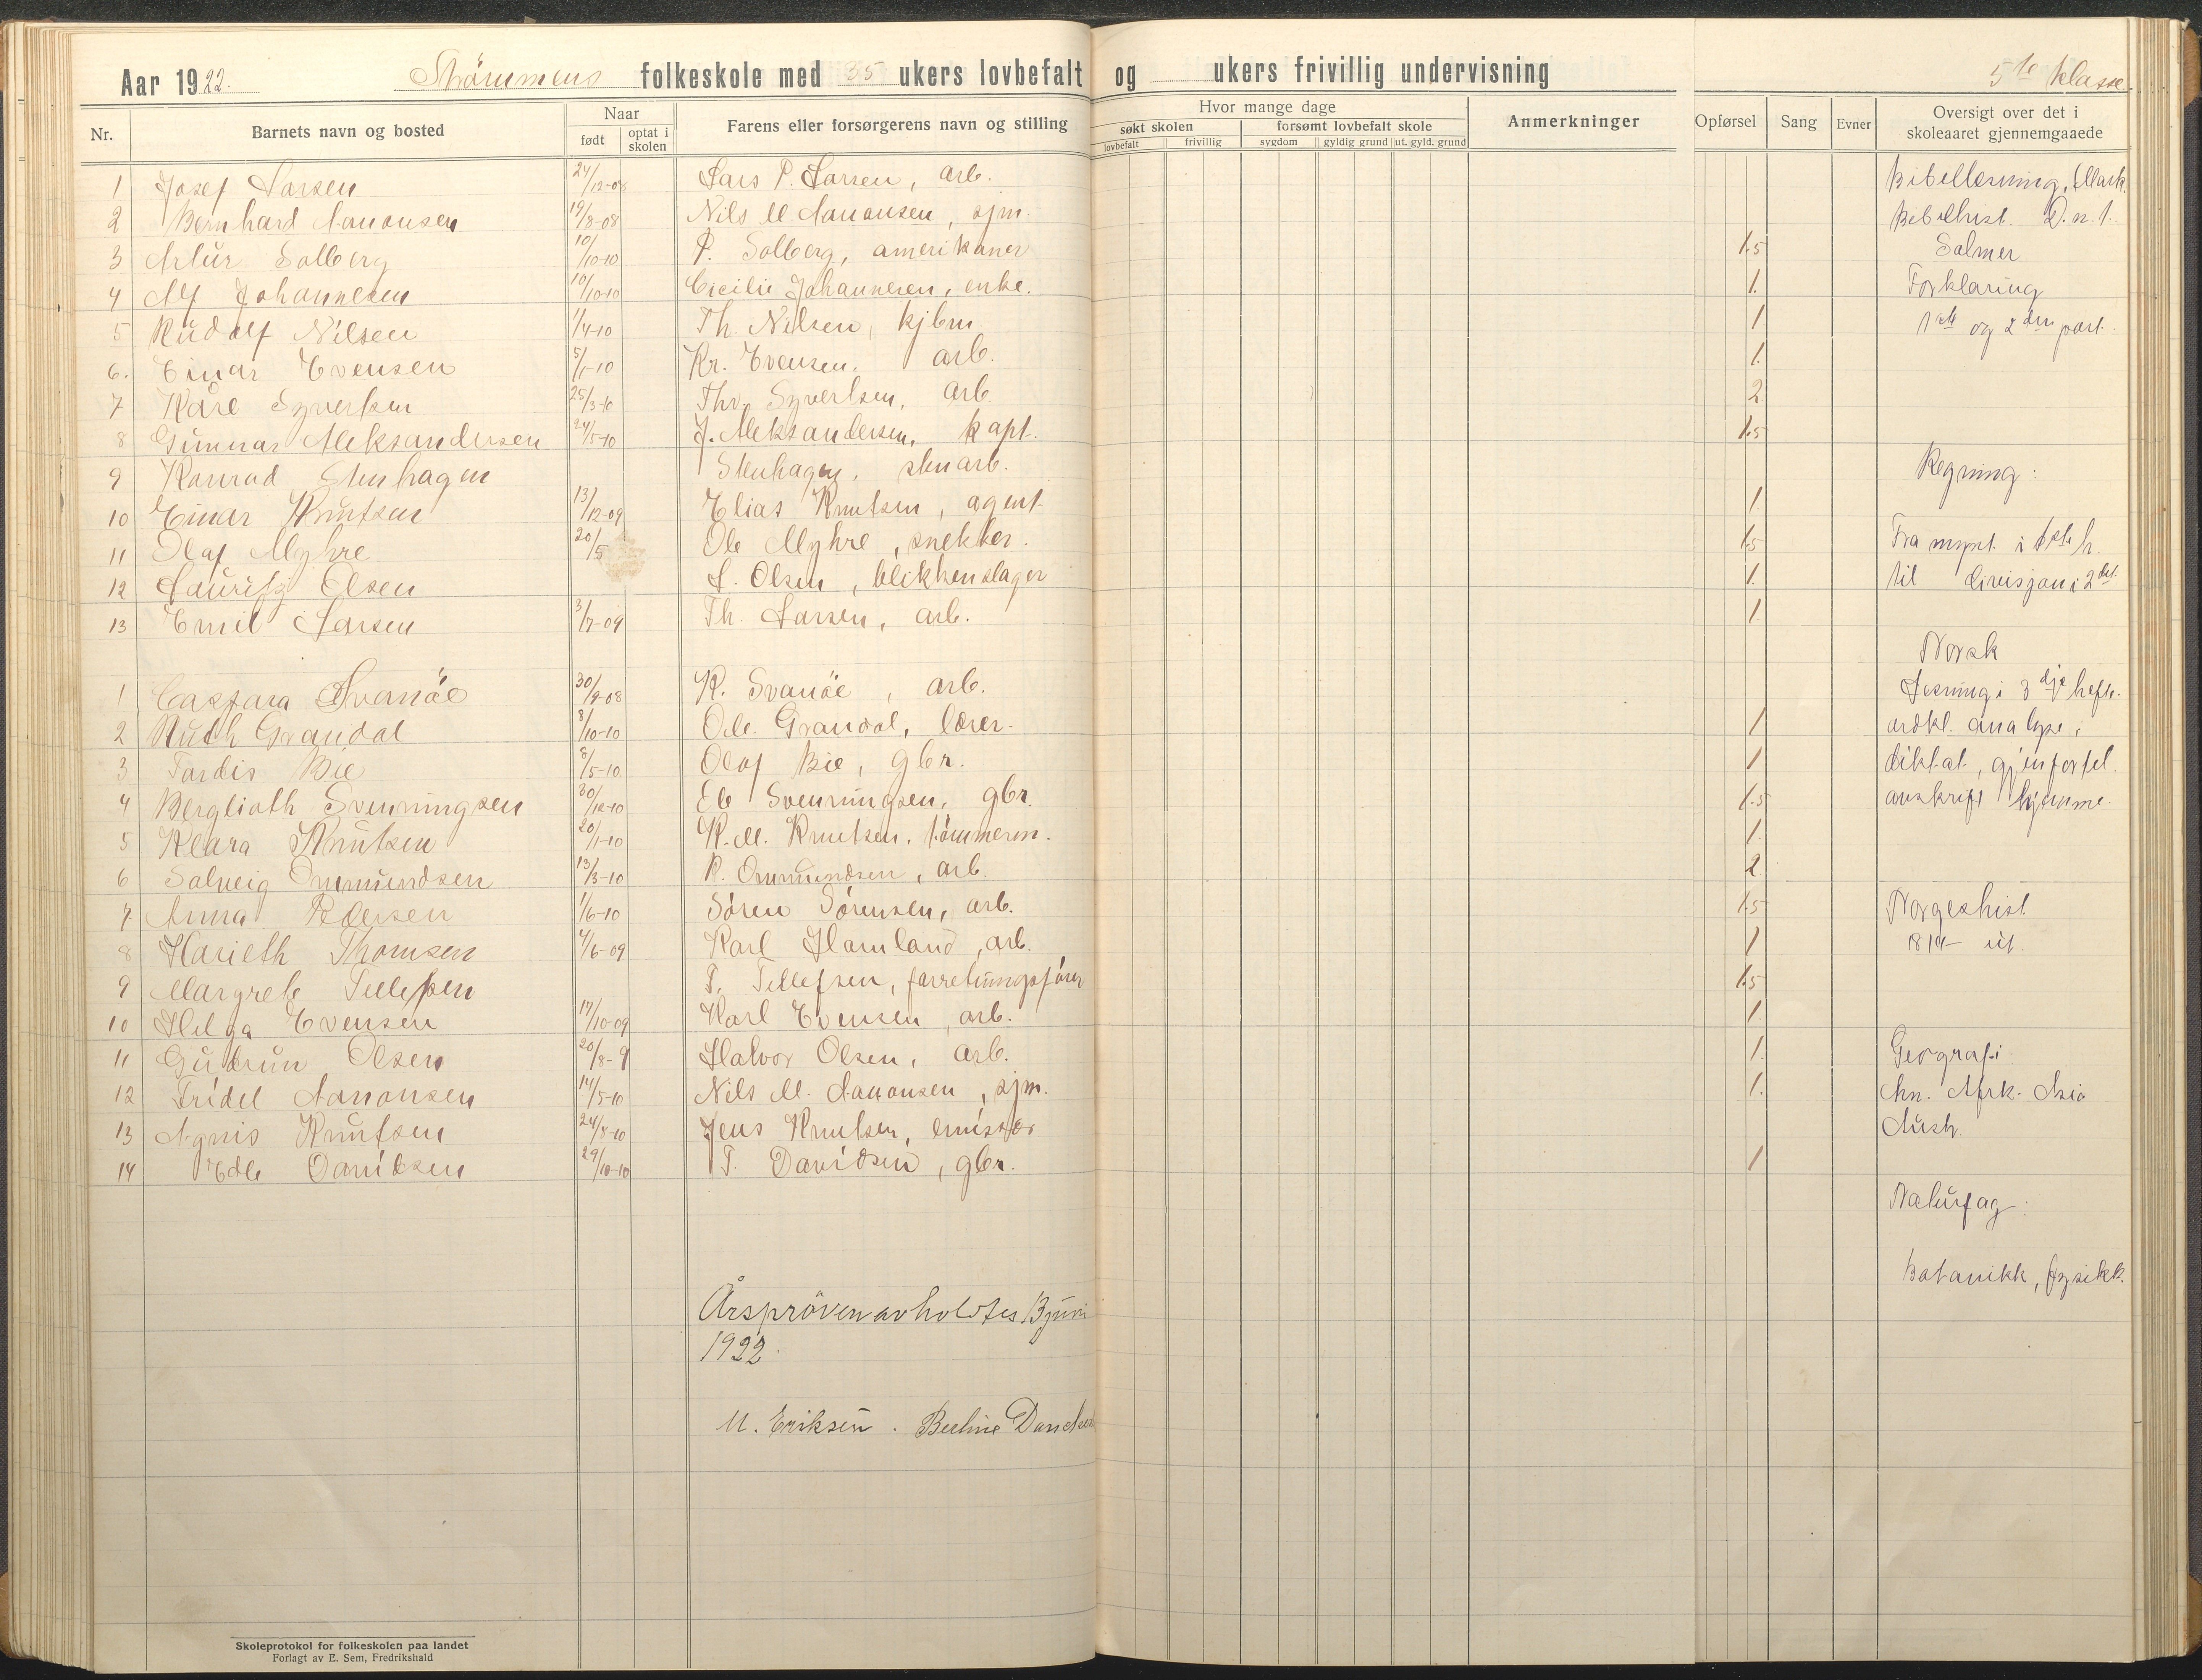 Aar 1922. Strömmens folkeskole med 35 ukers lovbefalt og ukers frivillig undervisning 5te klasse
Nr. Barnets navn og bosted Naar født optat i skolen Farens eller forsørgerens navn og stilling Hvor mange dage søkt skolen lovbefalt frivillig forsømt lovbefalt skole sygdom gyldig grund ut. gyld. grund Anmerkninger Opførsel Sang Evner Oversigt over det i skoleaaret gjennemgaaede
1 Josef Larsen 24/12-08 Lars P. Larsen, arb. Bibellesning, Mark.
2 Bernhard Aanonsen 19/8-08 Nils M Aanonsen, sjm. Bibelhist. D. n. t.
3 Artur Solberg 10/10-10 P. Solberg, amerikaner 1.5 Salmer
4 Alf Johannesen 10/10-10 Cicilie Johannesen, enke. 1. Forklaring
5 Rudolf Nilsen 1/4-10 Th. Nilsen, kjbm 1 1ste og 2den part.
6. Einar Evensen 5/1-10 Kr. Evensen. arb. 1.
7 Kåre Syvertsen 25/3-10 Thv. Syvertsen, arb 2
8 Gunnar Aleksandersen 24/5-10 J. Aleksandersen, kapt. 1.5
9 Konrad Stenhagen Stenhagen, stenarb. Regning:
10 Einar Knutsen 13/12-09 Elias Knutsen, agent 1
11 Olaf Myhre 20/5 Ole Myhre, snekker. 1.5 Fra mynt i 1ste h.
12 Lauritz Olsen L. Olsen, blikkenslager 1. til divisjon i 2det
13 Emil Larsen 3/7-09 Th. Larsen, arb. 1
Norsk
1 Caspara Svanöe 30/9-08 K. Svanöe, arb. Lesning i 3dje hefte.
2 Ruth Grandal 8/10-10 Ole Grandal, lærer. 1 ordkl. analyse,
3 Tordis Bie 8/5-10 Olaf Bie, gbr. 1 diktat, gjenfortel.
4 Berglioth Svenningsen 30/12-10 Ele Svenningsen, gbr. 1.5 avskrift hjemme.
5 Klara Knutsen 20/1-10 K. M. Knutsen, tömmerm. 1.
6 Solveig Ommundsen 13/3-10 R. Ommundsen, arb. 2
7 Anna Pedersen 1/6-10 Sören Sörensen, arb. 1.5 Norgeshist
8 Harieth Thomsen 4/6-09 Karl Hamland, arb. 1 1814 - ut.
9 Margrete Tellefsen T. Tellefsen, forretningsförer 1.5
10 Helga Evensen 17/10-09 Karl Evensen, arb. 1
11 Gudrun Olsen 20/8-9 Halvor Olsen, arb. 1. Geografi
12 Fridel Aanonsen 14/5-10 Nils M. Aanonsen, sjm. 1. Am. Afrk. Asia
13 Agnis Knutsen 24/8-10 Jens Knutsen, emissær Austr.
14 Edle Davidsen 29/10-10 T. Davidsen, gbr. 1
Naturfag:
Botanikk, fysikk.
Årspröven avholdtes 13 juni
1922.
M. Eriksen. Beeline
Skoleprotokol for folkeskolen paa landet
Forlagt av E. Sem, Fredrikshald